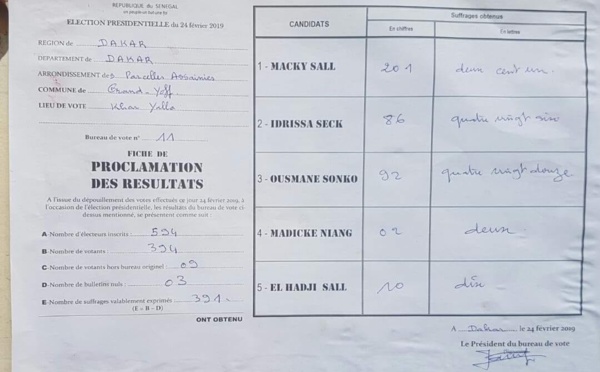 REPUBLIQUE DU SENEGAL
un peuple-un but-une foi
ELECTION PRESIDENTIELLE du 24 février 2019
REGION de DAKAR
DEPARTEMENT de DAKAR
ARRONDISSEMENT de Parcelles Assainies
COMMUNE de Grand-Yoff
LIEU DE VOTE Khar Yalla
Bureau de vote n° 11
FICHE DE
PROCLAMATION
DES RESULTATS
A l'issue du dépouillement des votes effectués ce jour 24 février 2019, à
l'occasion de l'élection présidentielle, les résultats du bureau de vote ci-
dessus mentionné, se présentent comme suit :
A -Nombre d'électeurs inscrits : 594
B -Nombre de votants 394
C -Nombre de votants hors bureau originel : 09
D -Nombre de bulletins nuls : 03
E -Nombre de suffrages valablement exprimés 391
(E = B - D)
ONT OBTENU
CANDIDATS
Suffrages obtenus
En chiffres
En lettres
1 - MACKY SALL 201 deux cent un.
2 - IDRISSA SECK 86 quatre vingt six
3 - OUSMANE SONKO 92 quatre vingt douze
4 - MADICKE NIANG 02 deux
5 - EL HADJI SALL 10 dix
A Dakar le 24 février 2019
Le Président du bureau de vote